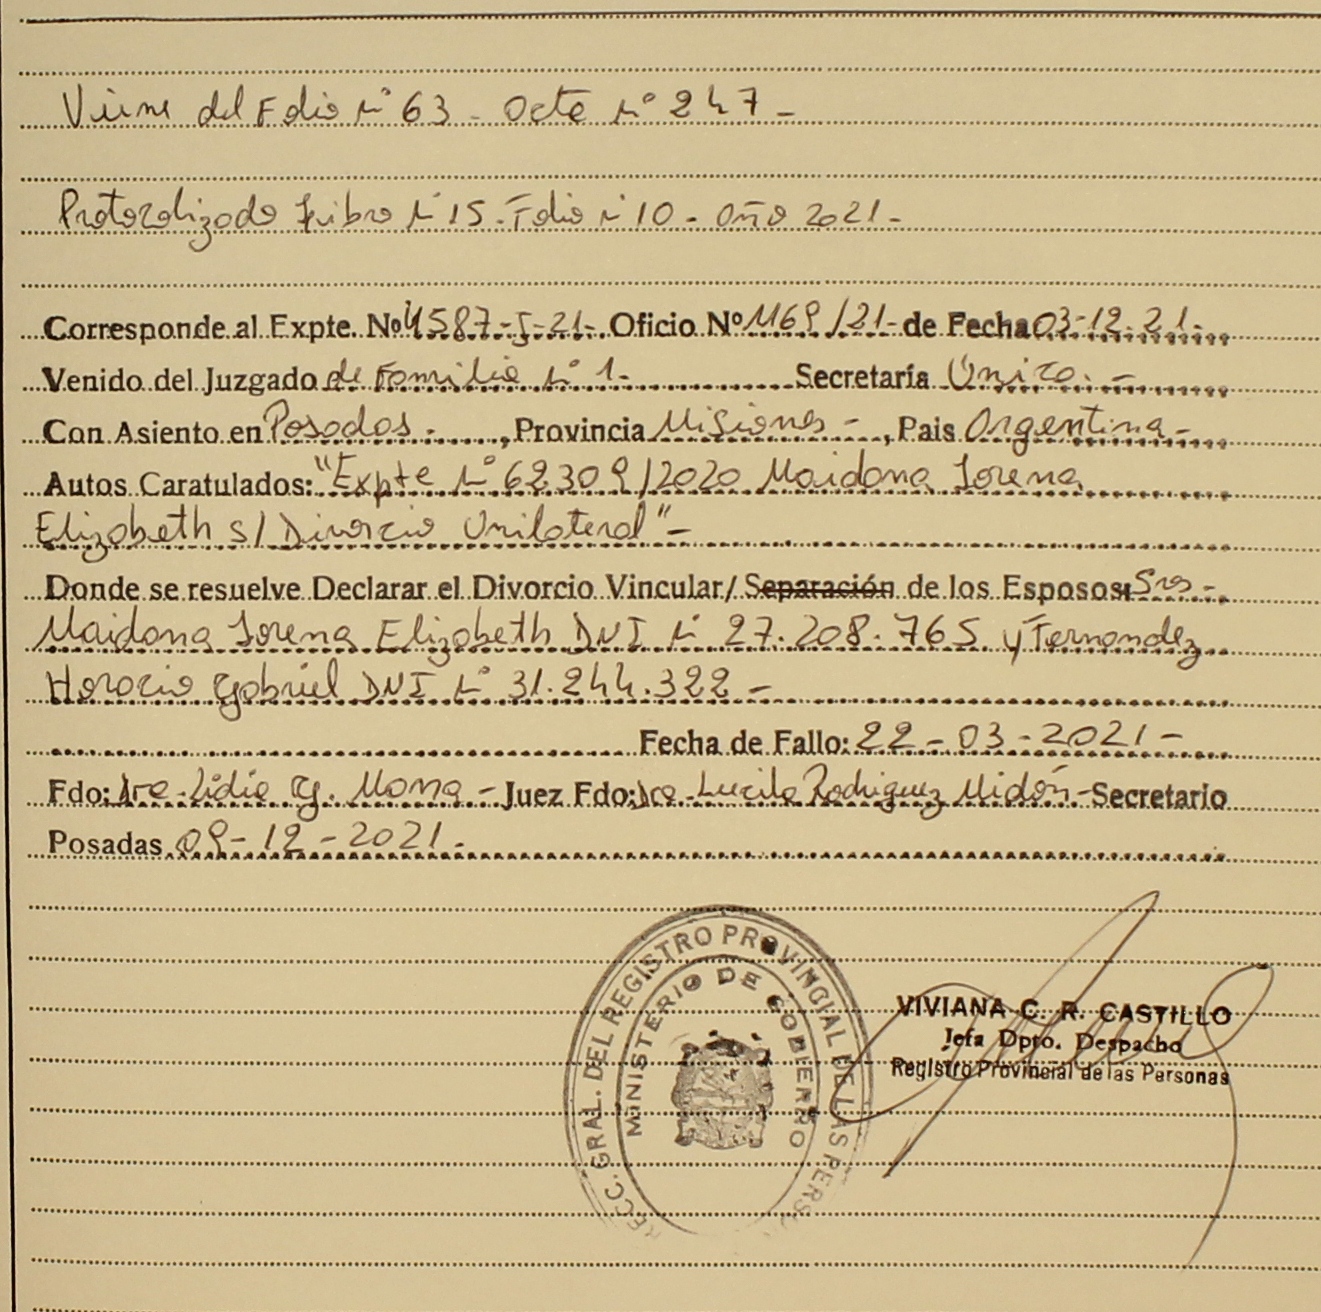 Viene del Folio N° 63 - Acta N° 247 -
Protocolizado Libro N° 15 - Folio N° 10 - Año 2021 -
Corresponde al Expte. Nº 4587-J-21-. Oficio Nº 1169/21- de Fecha 03-12-21-
Venido del Juzgado de Familia N° 1- Secretaría Única. -
Con Asiento en Posadas - , Provincia Misiones - , Pais Argentina -
Autos Caratulados: "Expte N° 62309/2020 Maidana Lorena
Elizabeth s/ Divorcio Unilateral" -
Donde se resuelve Declarar el Divorcio Vincular/ Separación de los Esposos: Sres -
Maidana Lorena Elizabeth DNI N° 27.208.765 y Fernandez
Horacio Gabriel DNI N° 31.244.322 -
Fecha de Fallo: 22-03-2021 -
Fdo: Dra. Lidia G. Mona - Juez Fdo: Dra. Lucila Rodriguez Midón - Secretario
Posadas 09-12-2021 -
RECC. GRAL. DEL REGISTRO PROVINCIAL DE LAS PERSO
MINISTERIO DE GOBIERNO
VIVIANA C. R. CASTILLO
Jefa Dpto. Despacho
Registro Provincial de las Personas